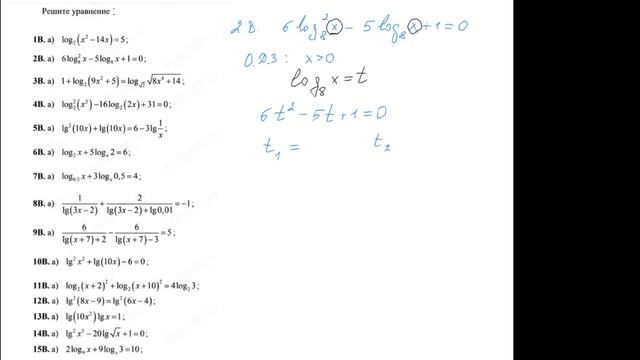 Решите уравнение :
1В. а) log₂(x² − 14x) = 5;
2В. а) 6log₈² x − 5log₈ x + 1 = 0;
3В. а) 1 + log₂(9x² + 5) = log_√2 √(8x⁴ + 14);
4В. а) log₂²(x²) − 16log₂(2x) + 31 = 0;
5В. а) lg²(10x) + lg(10x) = 6 − 3lg 1/x;
6В. а) log₂ x + 5logₓ 2 = 6;
7В. а) log₀,₅ x + 3logₓ 0,5 = 4;
8В. а) 1/lg(3x − 2) + 2/(lg(3x − 2) + lg0,01) = −1;
9В. а) 6/(lg(x + 7) + 2) − 6/(lg(x + 7) − 3) = 5;
10В. а) lg² x² + lg(10x) − 6 = 0;
11В. а) log₂(x + 2)² + log₂(x + 10)² = 4log₂ 3;
12В. а) lg²(8x − 9) = lg²(6x − 4);
13В. а) lg(10x²) lg x = 1;
14В. а) lg² x³ − 20lg √x + 1 = 0;
15В. а) 2log₉ x + 9logₓ 3 = 10;
2В. 6 log₈² x − 5 log₈ x + 1 = 0
О.Д.З : x > 0
log₈ x = t
6t² − 5t + 1 = 0
t₁ = t₂